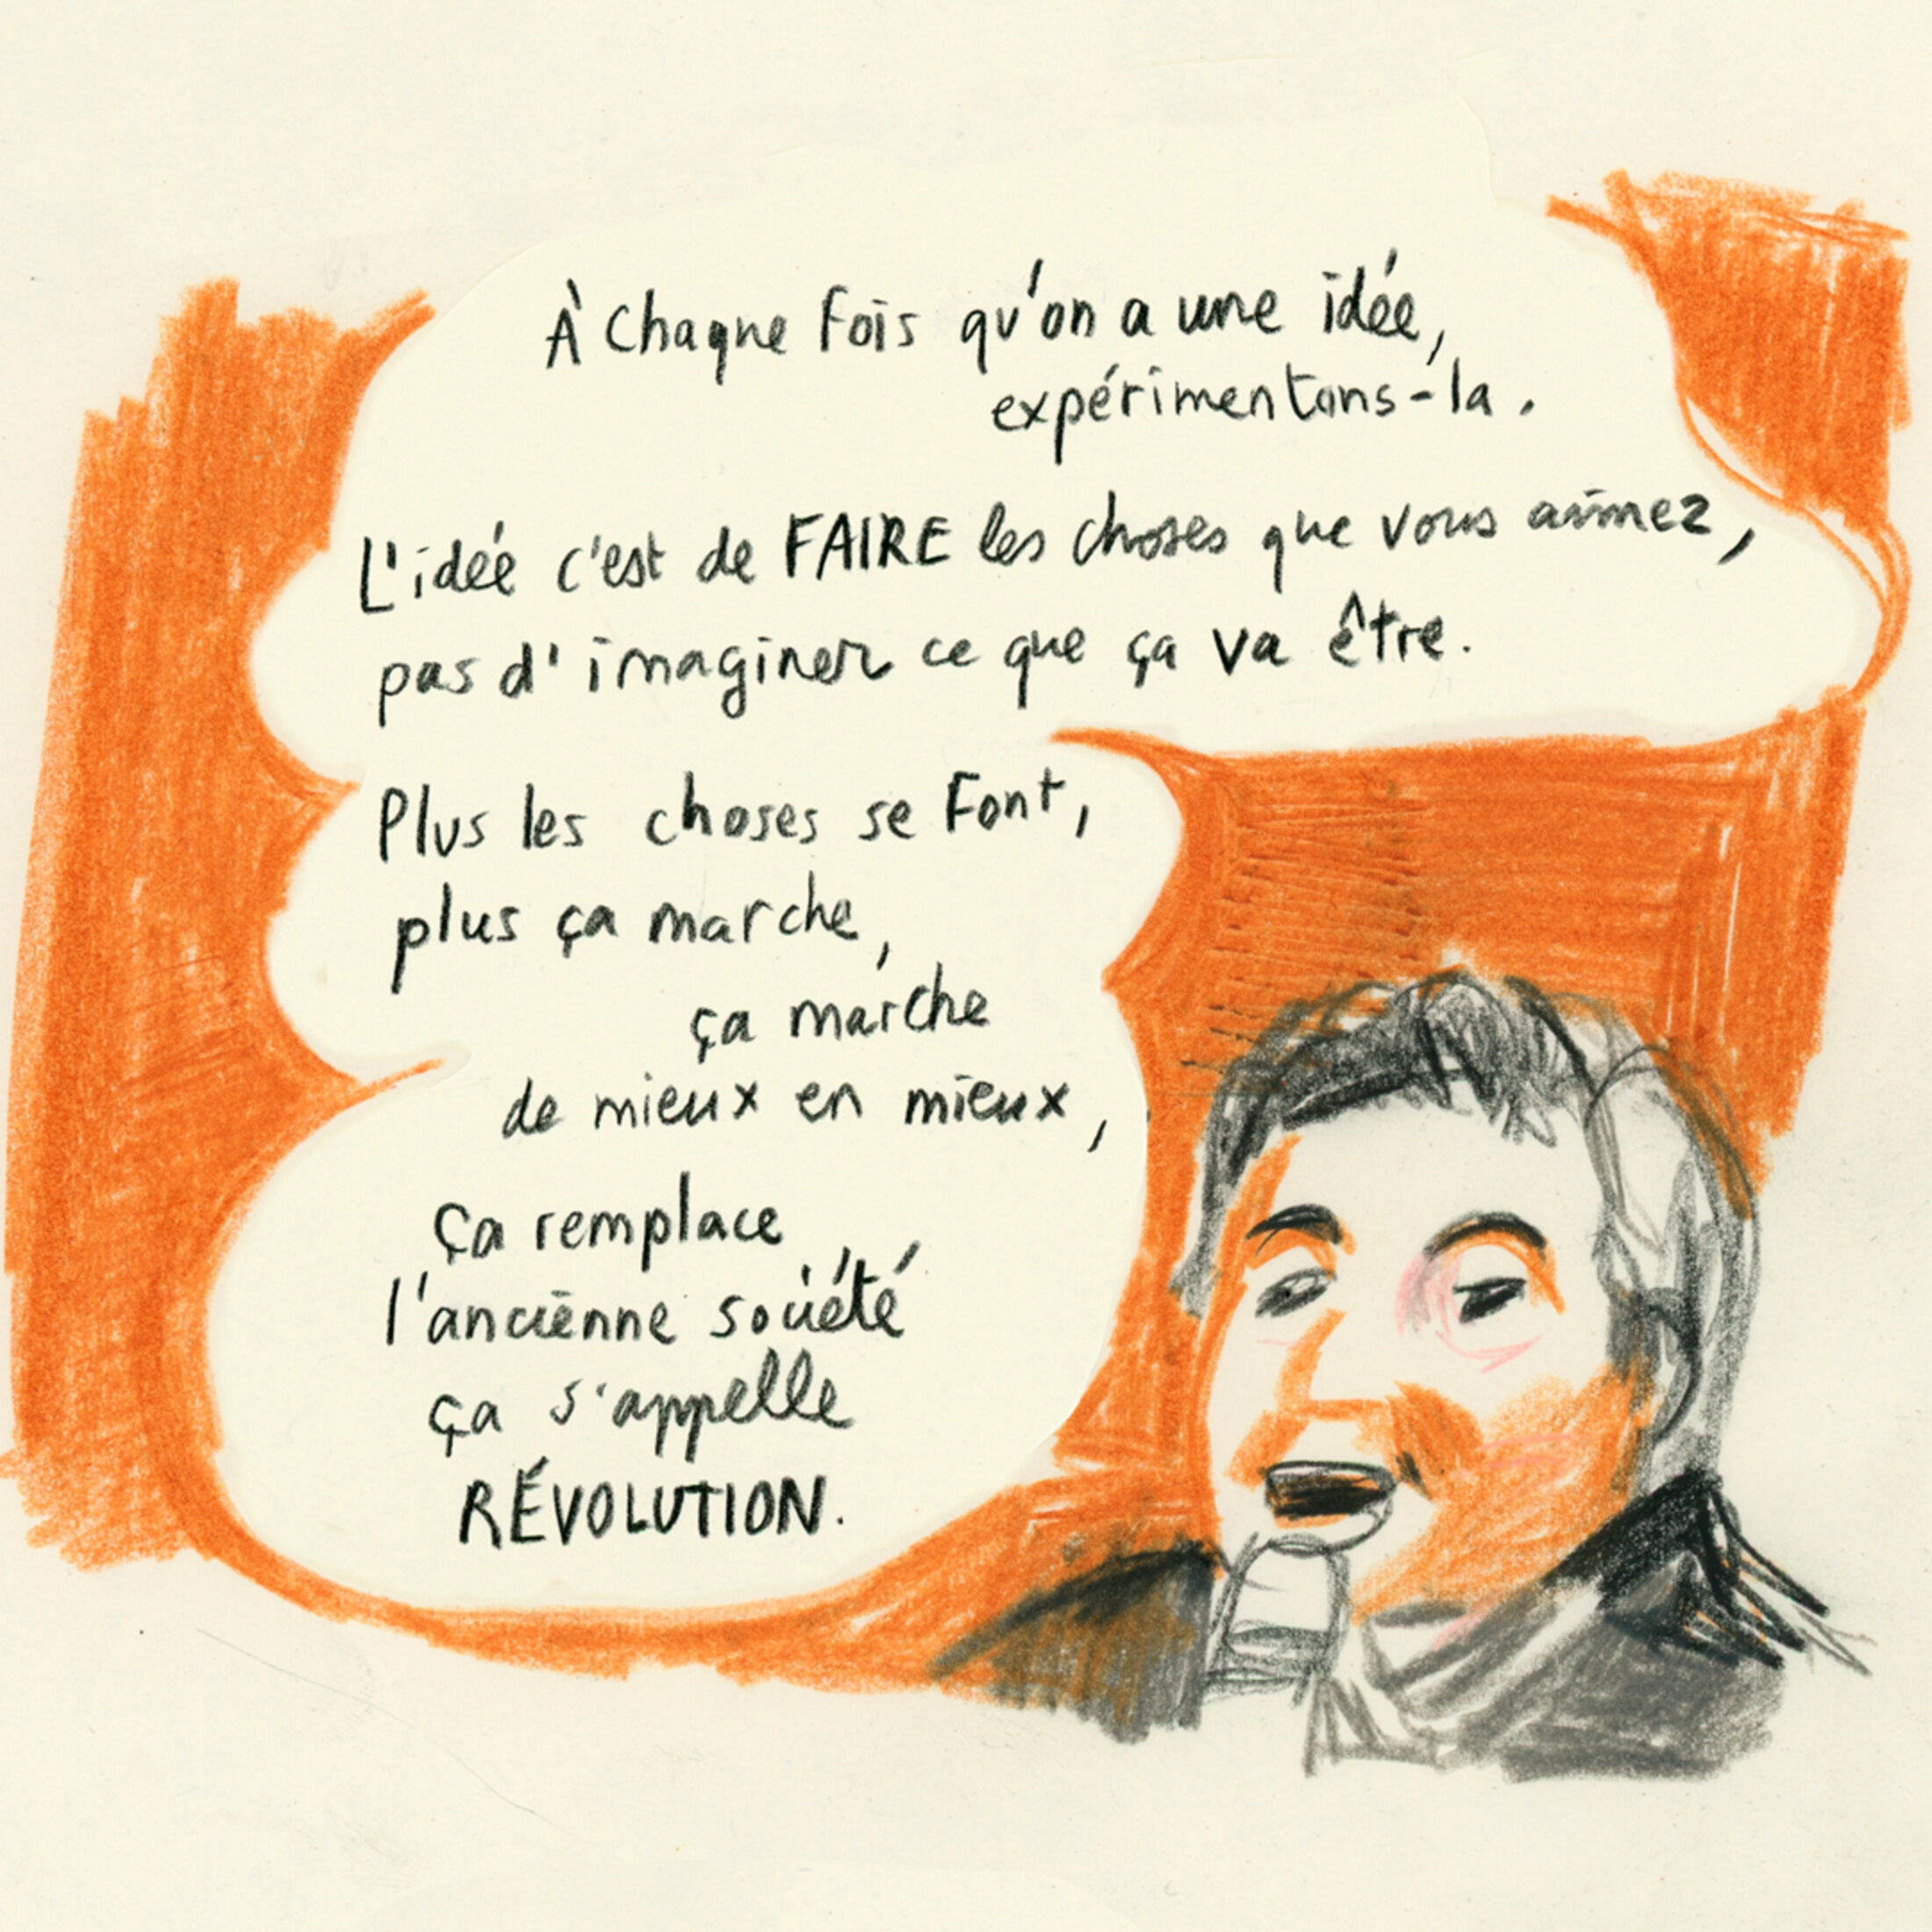 À chaque fois qu'on a une idée,
expérimentons-la.
L'idée c'est de FAIRE les choses que vous aimez,
pas d'imaginer ce que ça va être.
Plus les choses se font,
plus ça marche,
ça marche
de mieux en mieux,
ça remplace
l'ancienne société
ça s'appelle
RÉVOLUTION.